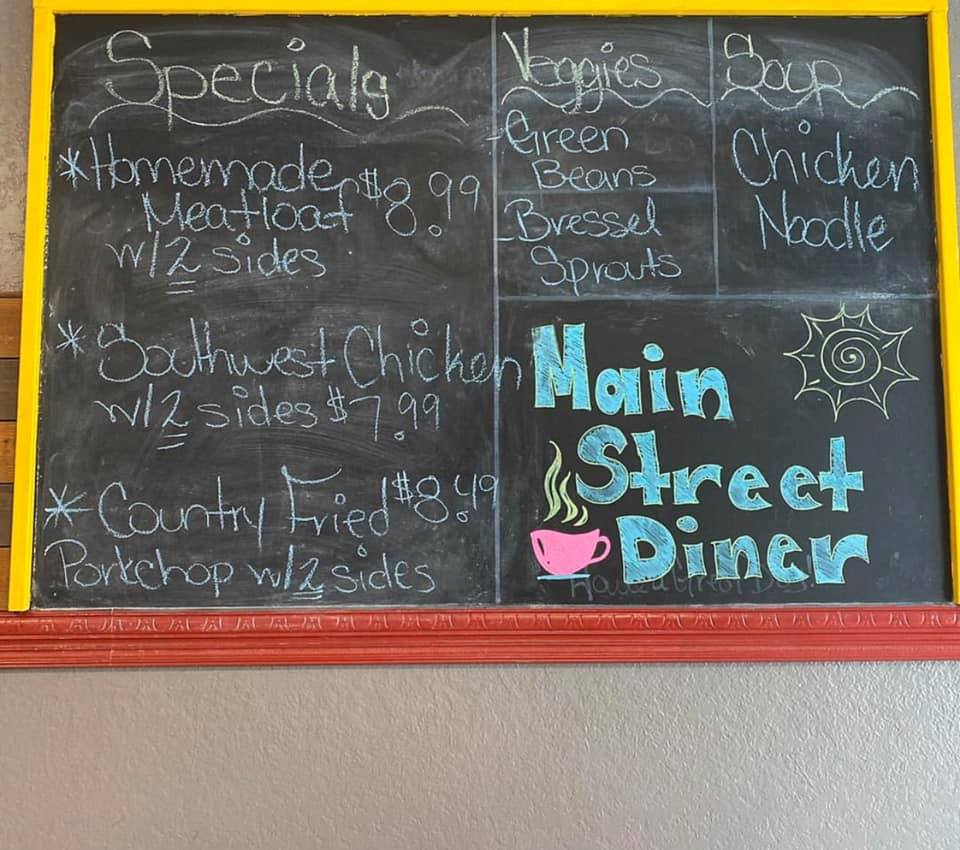 Specials
*Homemade $8.99
Meatloaf
w/2 sides
* Southwest Chicken
w/2 sides $7.99
* Country Fried $8.49
Porkchop w/2 sides
Veggies
-Green
Beans
-Bressel
Sprouts
Soup
Chicken
Noodle
Main
Street
Diner